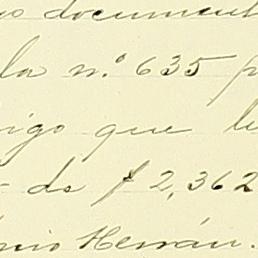 documento
la n.º 635 p
igo que le
de $ 2,362
nio Herrán.